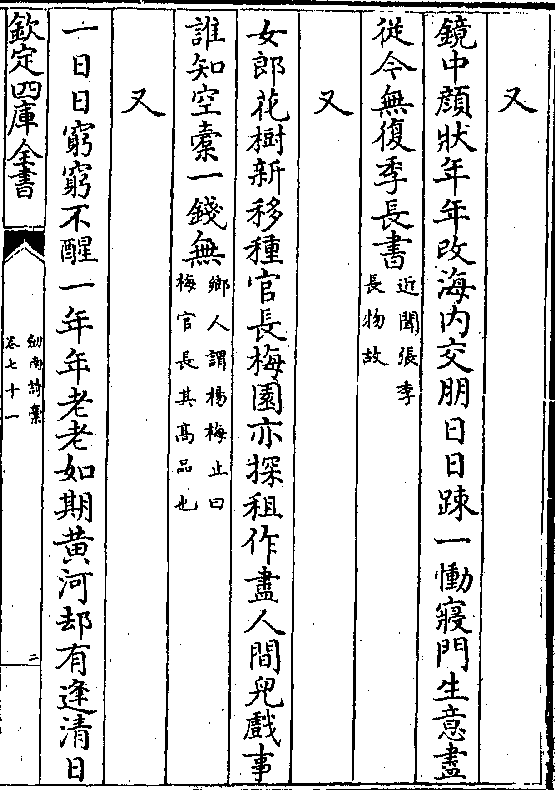 又
鏡中顔狀年年改海内交朋日日踈一慟寢門生意盡
從今無復季長書近聞張季長物故
又
女郎花樹新移種官長梅園亦探租作盡人間兒戲事
誰知空橐一錢無鄉人謂楊梅止曰梅官長其髙品也
又
一日日窮窮不醒一年年老老如期黄河却有逢清日
欽定四庫全書
劍南詩藁
卷七十一
二